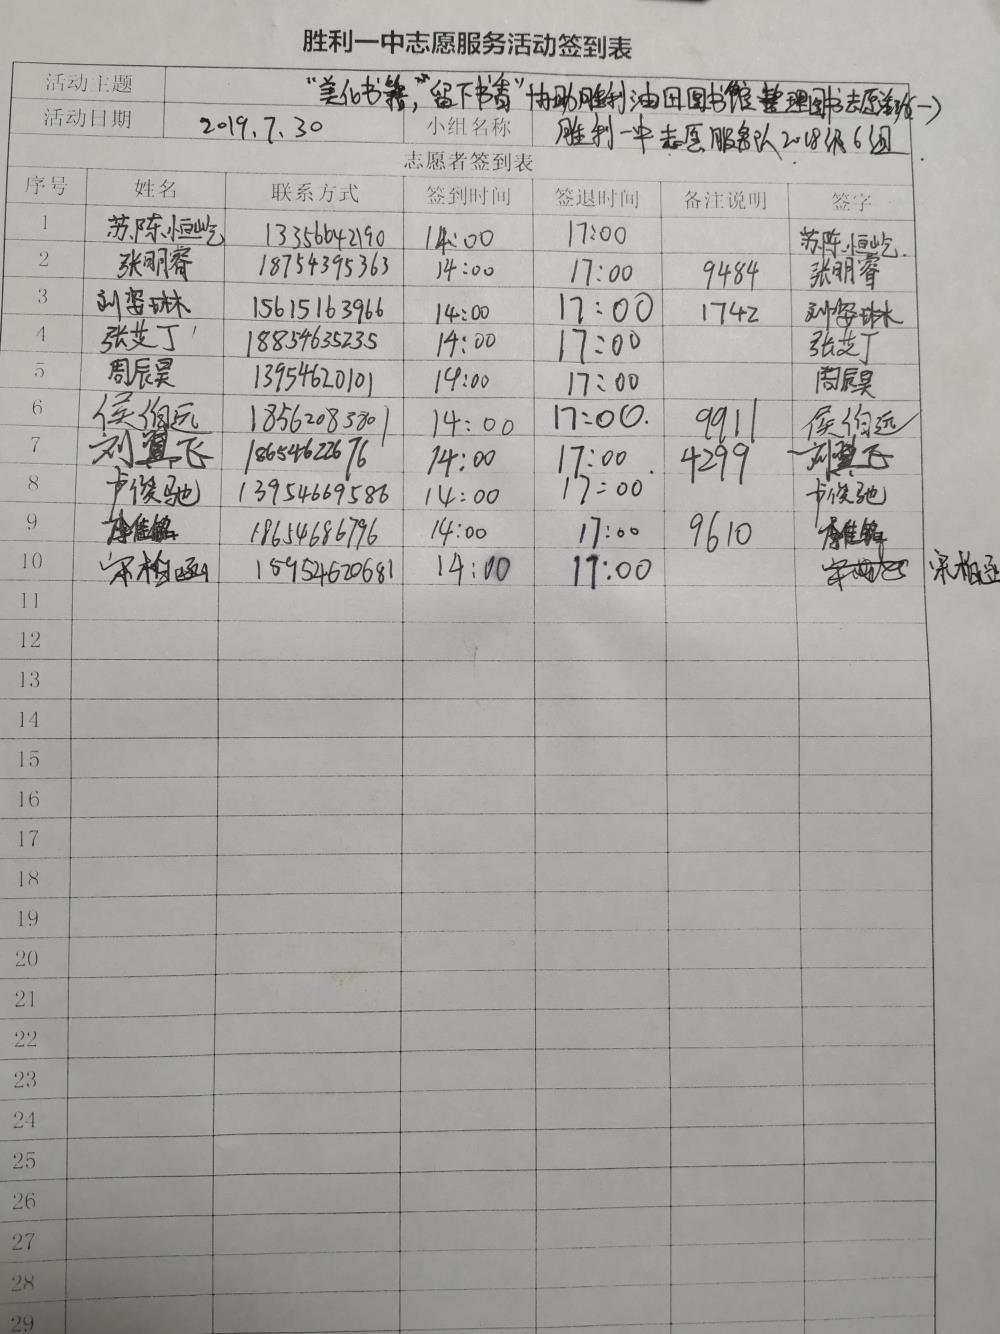 胜利一中志愿服务活动签到表
活动主题 "美化书籍,"留下书香"协助胜利油田图书馆整理图书志愿活动(一)
活动日期 2019.7.30 小组名称 胜利一中志愿服务队2018级6组
志愿者签到表
序号 姓名 联系方式 签到时间 签退时间 备注说明 签字
1 苏陈恒屹 13356642190 14:00 17:00 苏陈恒屹
2 张明睿 18754395363 14:00 17:00 9484 张明睿
3 15615163966 14:00 17:00 1742
4 张芝丁 18854635235 14:00 17:00 张芝丁
5 周辰昊 13954620101 14:00 17:00 周辰昊
6 侯伯远 18562083801 14:00 17:00. 9911 侯伯远
7 刘翼飞 18654622676 14:00 17:00. 4299 刘翼飞
8 卢俊驰 13954669586 14:00 17:00 卢俊驰
9 18654686796 14:00 17:00 9610
10 宋柏函 18954620681 14:00 17:00 宋柏函
11
12
13
14
15
16
17
18
19
20
21
22
23
24
25
26
27
28
29